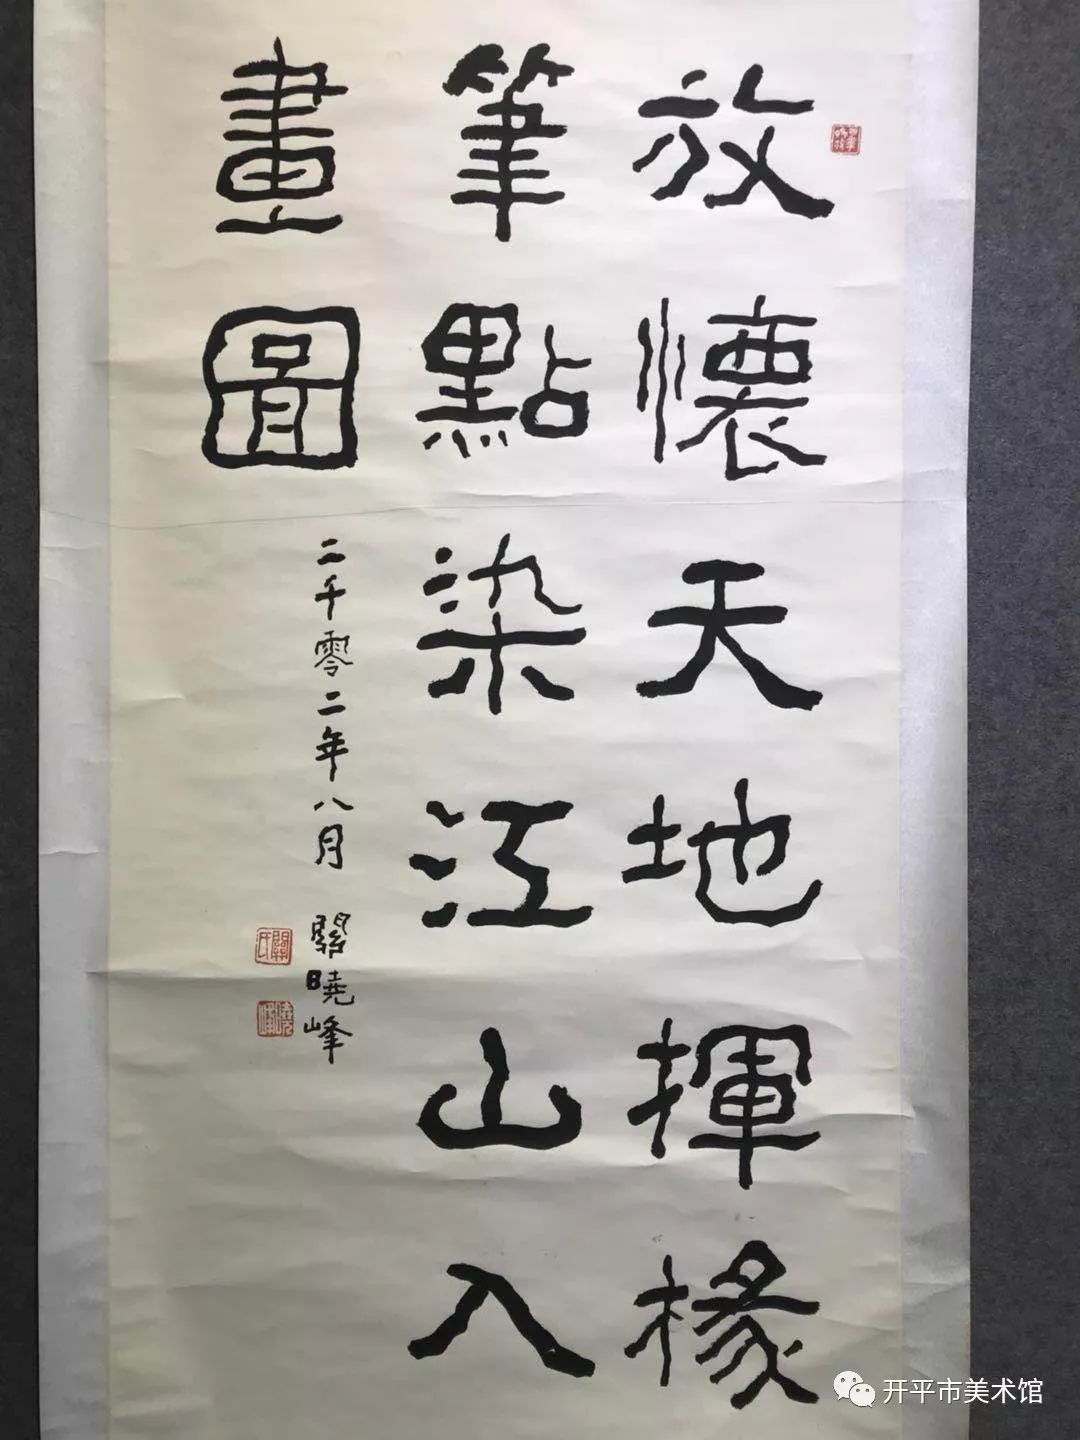 放懷天地揮椽
筆點染江山入
畫圖
二千零二年八月 關曉峰
關氏
曉峰
开平市美术馆